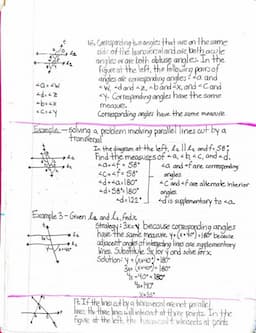 Corresponding
angles that are on the same
side of the transversal and are both acute
angles or are both obtuse angles. In the
figure at the left, the following pairs of
angles are corresponding: ∠a and
∠w, ∠d and ∠z, ∠b and ∠x, and ∠c and
∠y. Corresponding angles have the same
measure.
Corresponding angles have the same measure
∠a = ∠w
∠d = ∠z
∠b = ∠x
∠c = ∠y
Example - solving a problem involving parallel lines cut by a
transversal
In the diagram at the left, l₁ || l₂ and f = 58°
Find the measures of ∠a, ∠b, ∠c, and ∠d.
∠a = ∠f = 58° ∠a and ∠f are corresponding
angles
∠c = ∠f = 58° ∠c and ∠f are alternate interior
∠d + ∠a = 180° angles
∠d + 58° = 180° ∠d is supplementary to ∠a
∠d = 122°
Example 3 - Given l₁ and l₂, find x
Strategy: 3x = y because corresponding angles
have the same measure. y + (x + 40°) = 180° because
adjacent angles of intersecting lines are supplementary
lines. Substitute 3x for y and solve for x.
Solution: y + (x + 40°) = 180°
3x + (x + 40°) = 180°
4x + 40° = 180°
4x = 140°
x = 35°
If the lines cut by a transversal are not parallel
lines, the three lines will intersect at three points. In the
figure at the left, the transversal t intersects at points